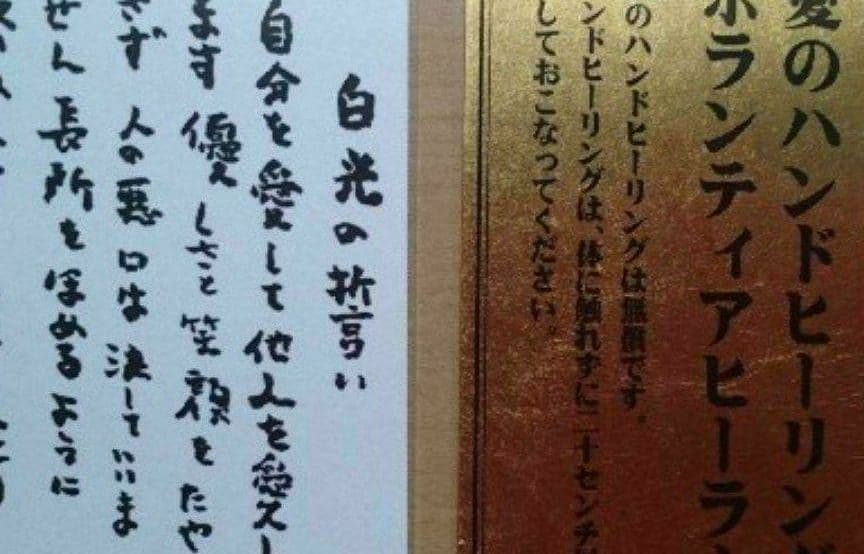 愛のハンドヒーリン
ボランティアヒーラ
のハンドヒーリングは無償です。
ンドヒーリングは、体に触れずに二十センチ
しておこなってください。
白光の誓い
自分を愛して他人を愛し
ます 優しさと笑顔をたや
さず 人の悪口は決していいま
せん 長所をほめるように